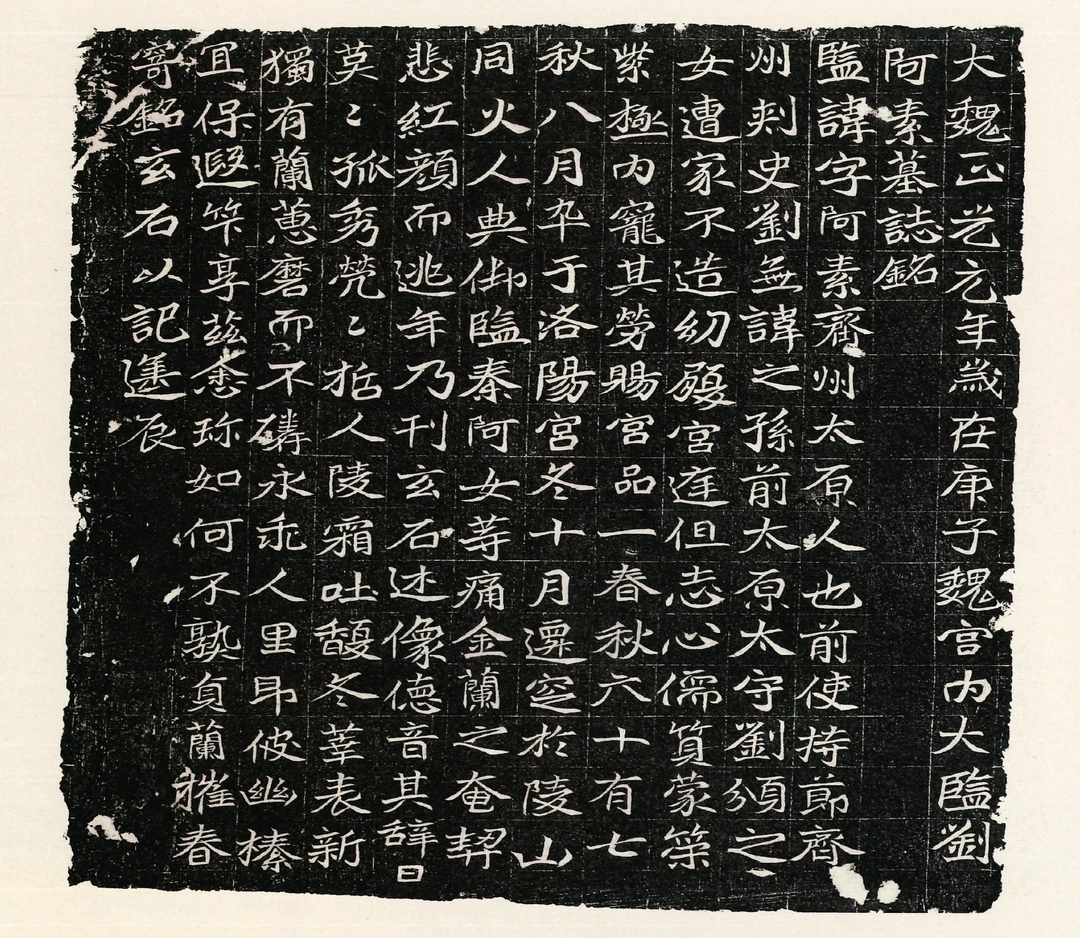 大魏正光元年歲在庚子魏宮內大監劉
阿素墓誌銘
監諱字阿素齊州太原人也前使持節齊
州刺史劉無諱之孫前太原太守劉頒之
女遭家不造幼履宮庭但志心儒質蒙策
紫極內寵其勞賜宮品一春秋六十有七
秋八月卒于洛陽宮冬十月遷窆於陵山
同火人典御監秦阿女等痛金蘭之奄契
悲紅顏而逃年乃刊玄石述像德音其辭曰
莫〻孤秀煢〻哲人陵霜吐馥冬華表新
獨有蘭蕙磨而不磷永乖人里即彼幽榛
宜保遐算享茲悆珍如何不孰貞蘭摧春
寄銘玄石以記遷辰